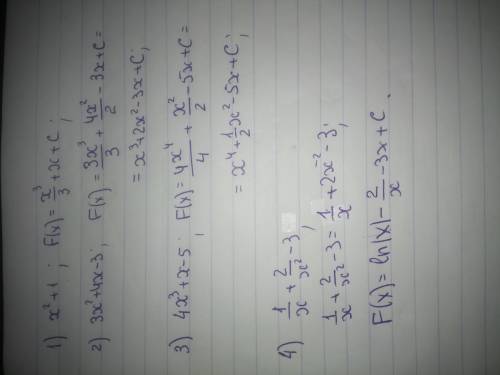 1) x²+1 ; F(x) = x³/3 + x + C ;
2) 3x²+4x-3 ; F(x) = 3x³/3 + 4x²/2 - 3x + C =
= x³+2x²-3x+C ;
3) 4x³+x-5 ; F(x) = 4x⁴/4 + x²/2 - 5x + C =
= x⁴ + 1/2 x² - 5x + C ;
4) 1/x + 2/x² - 3 ;
1/x + 2/x² - 3 = 1/x + 2x⁻² - 3 ;
F(x) = ln|x| - 2/x - 3x + C .